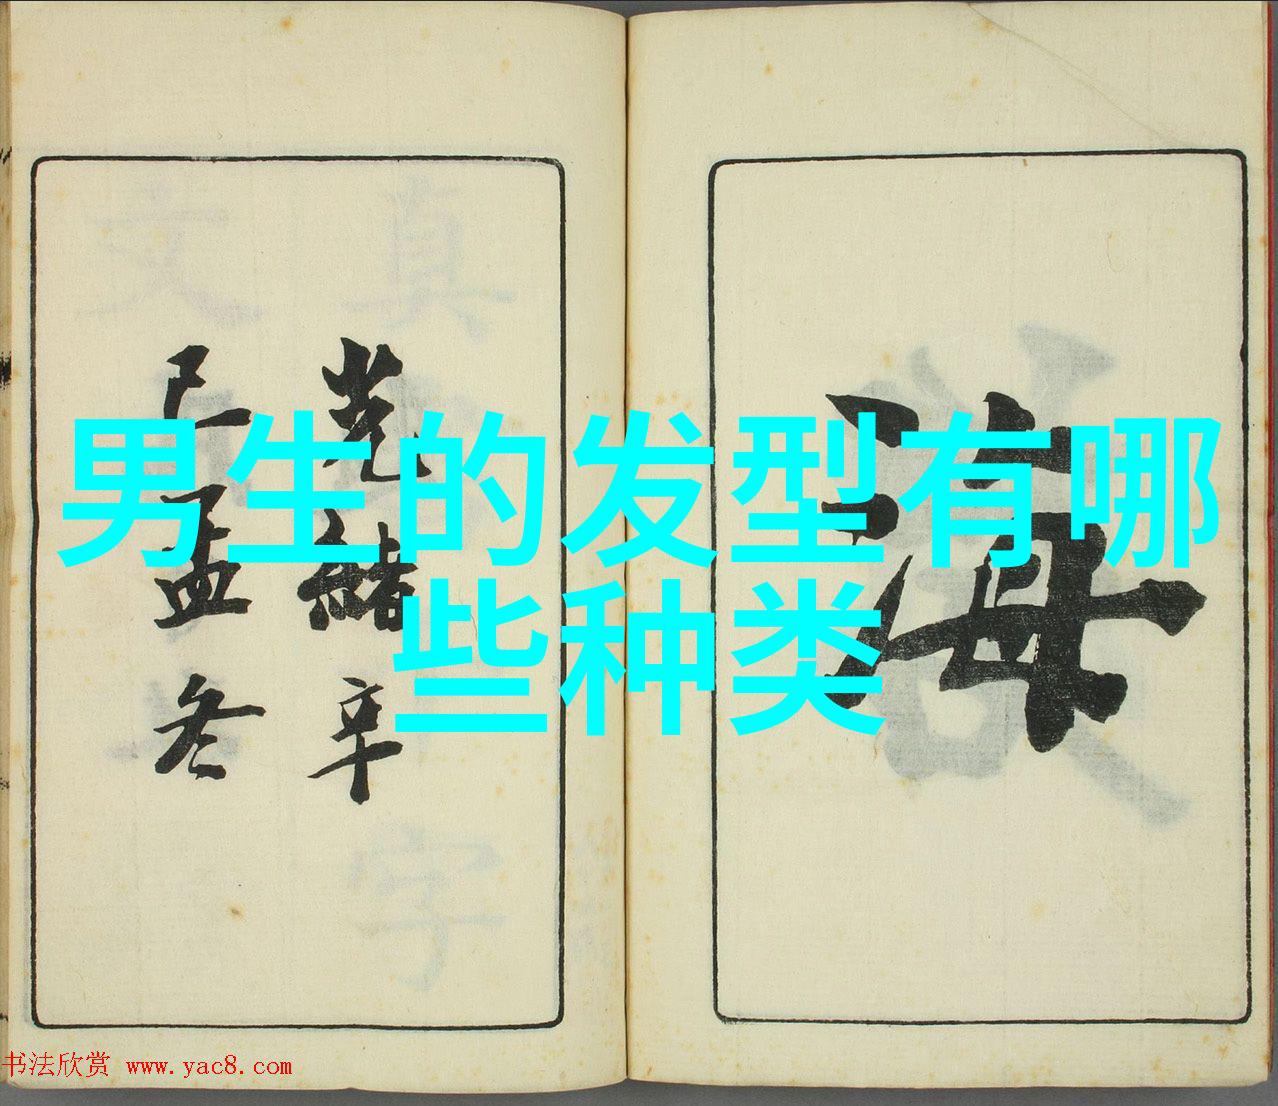 男生的发型有哪
些种类
海
光緒辛
巳孟冬
书法欣赏 www.yac8.com